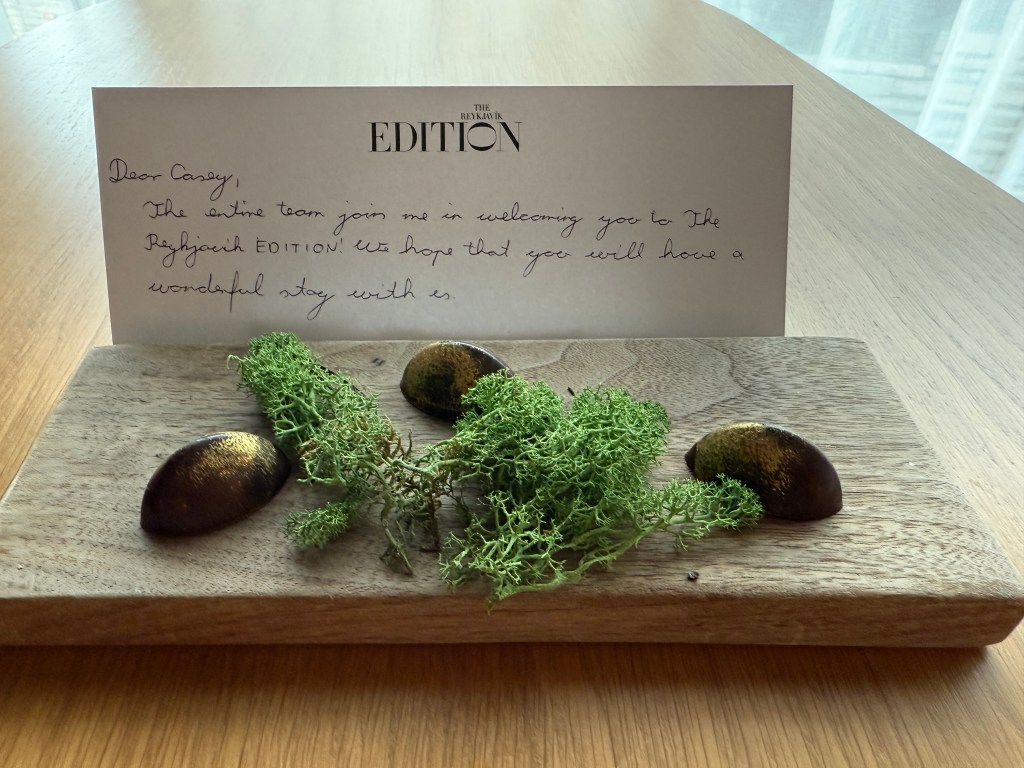 THE
REYKJAVÍK
EDITION
Dear Casey,
The entire team join me in welcoming you to The
Reykjavik EDITION! We hope that you will have a
wonderful stay with us.